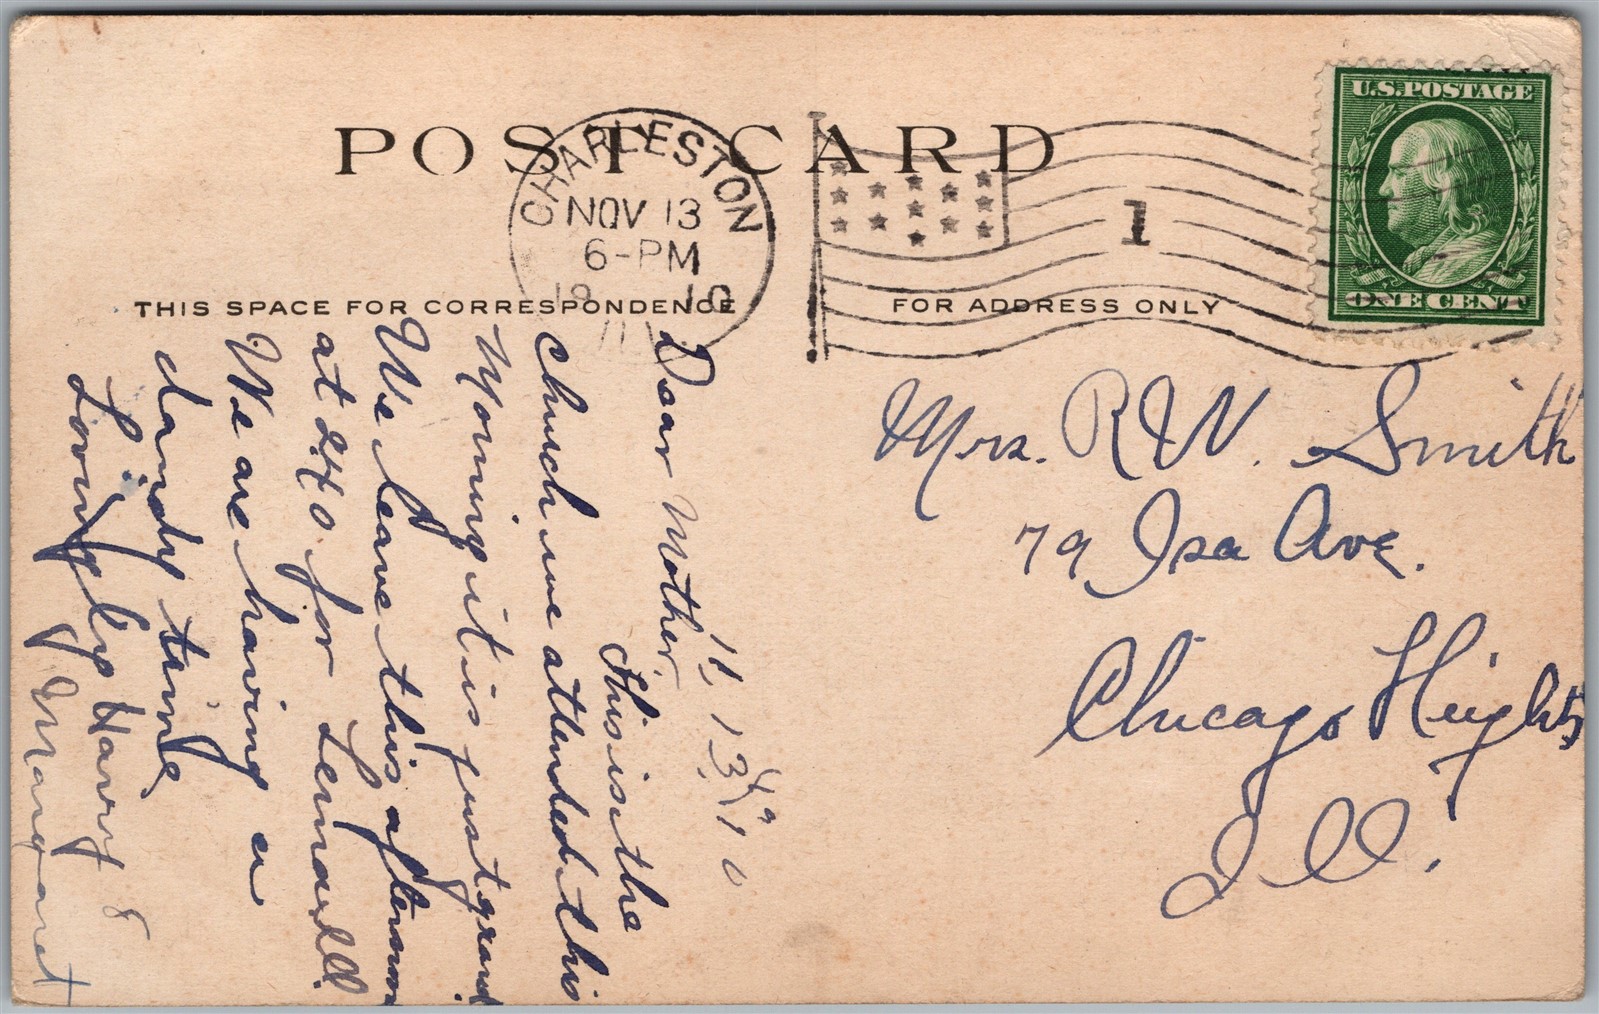 POST CARD
CHARLESTON
NOV 13
6-PM
1910
ILL
1
U.S. POSTAGE
ONE CENT
THIS SPACE FOR CORRESPONDENCE
FOR ADDRESS ONLY
11, 13, 10
Dear Mother,
This is the
church we attended this
Morning it is just grand.
We leave this afternoon
at 240. for
We are having a
dandy time
Lovingly Harry &
Margaret
Mrs. R W. Smith
79 Isa Ave.
Chicago Heights
Ill.